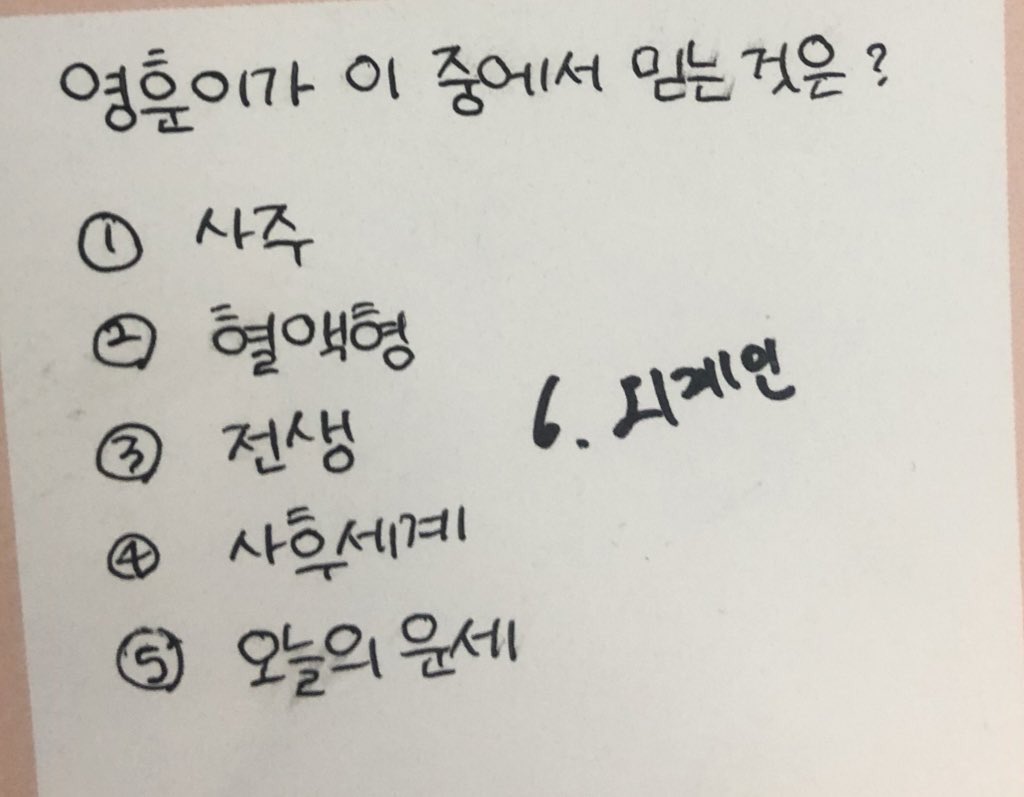 영훈이가 이 중에서 믿는 것은?
① 사주
② 혈액형
③ 전생
④ 사후세계
⑤ 오늘의 운세
6. 외계인